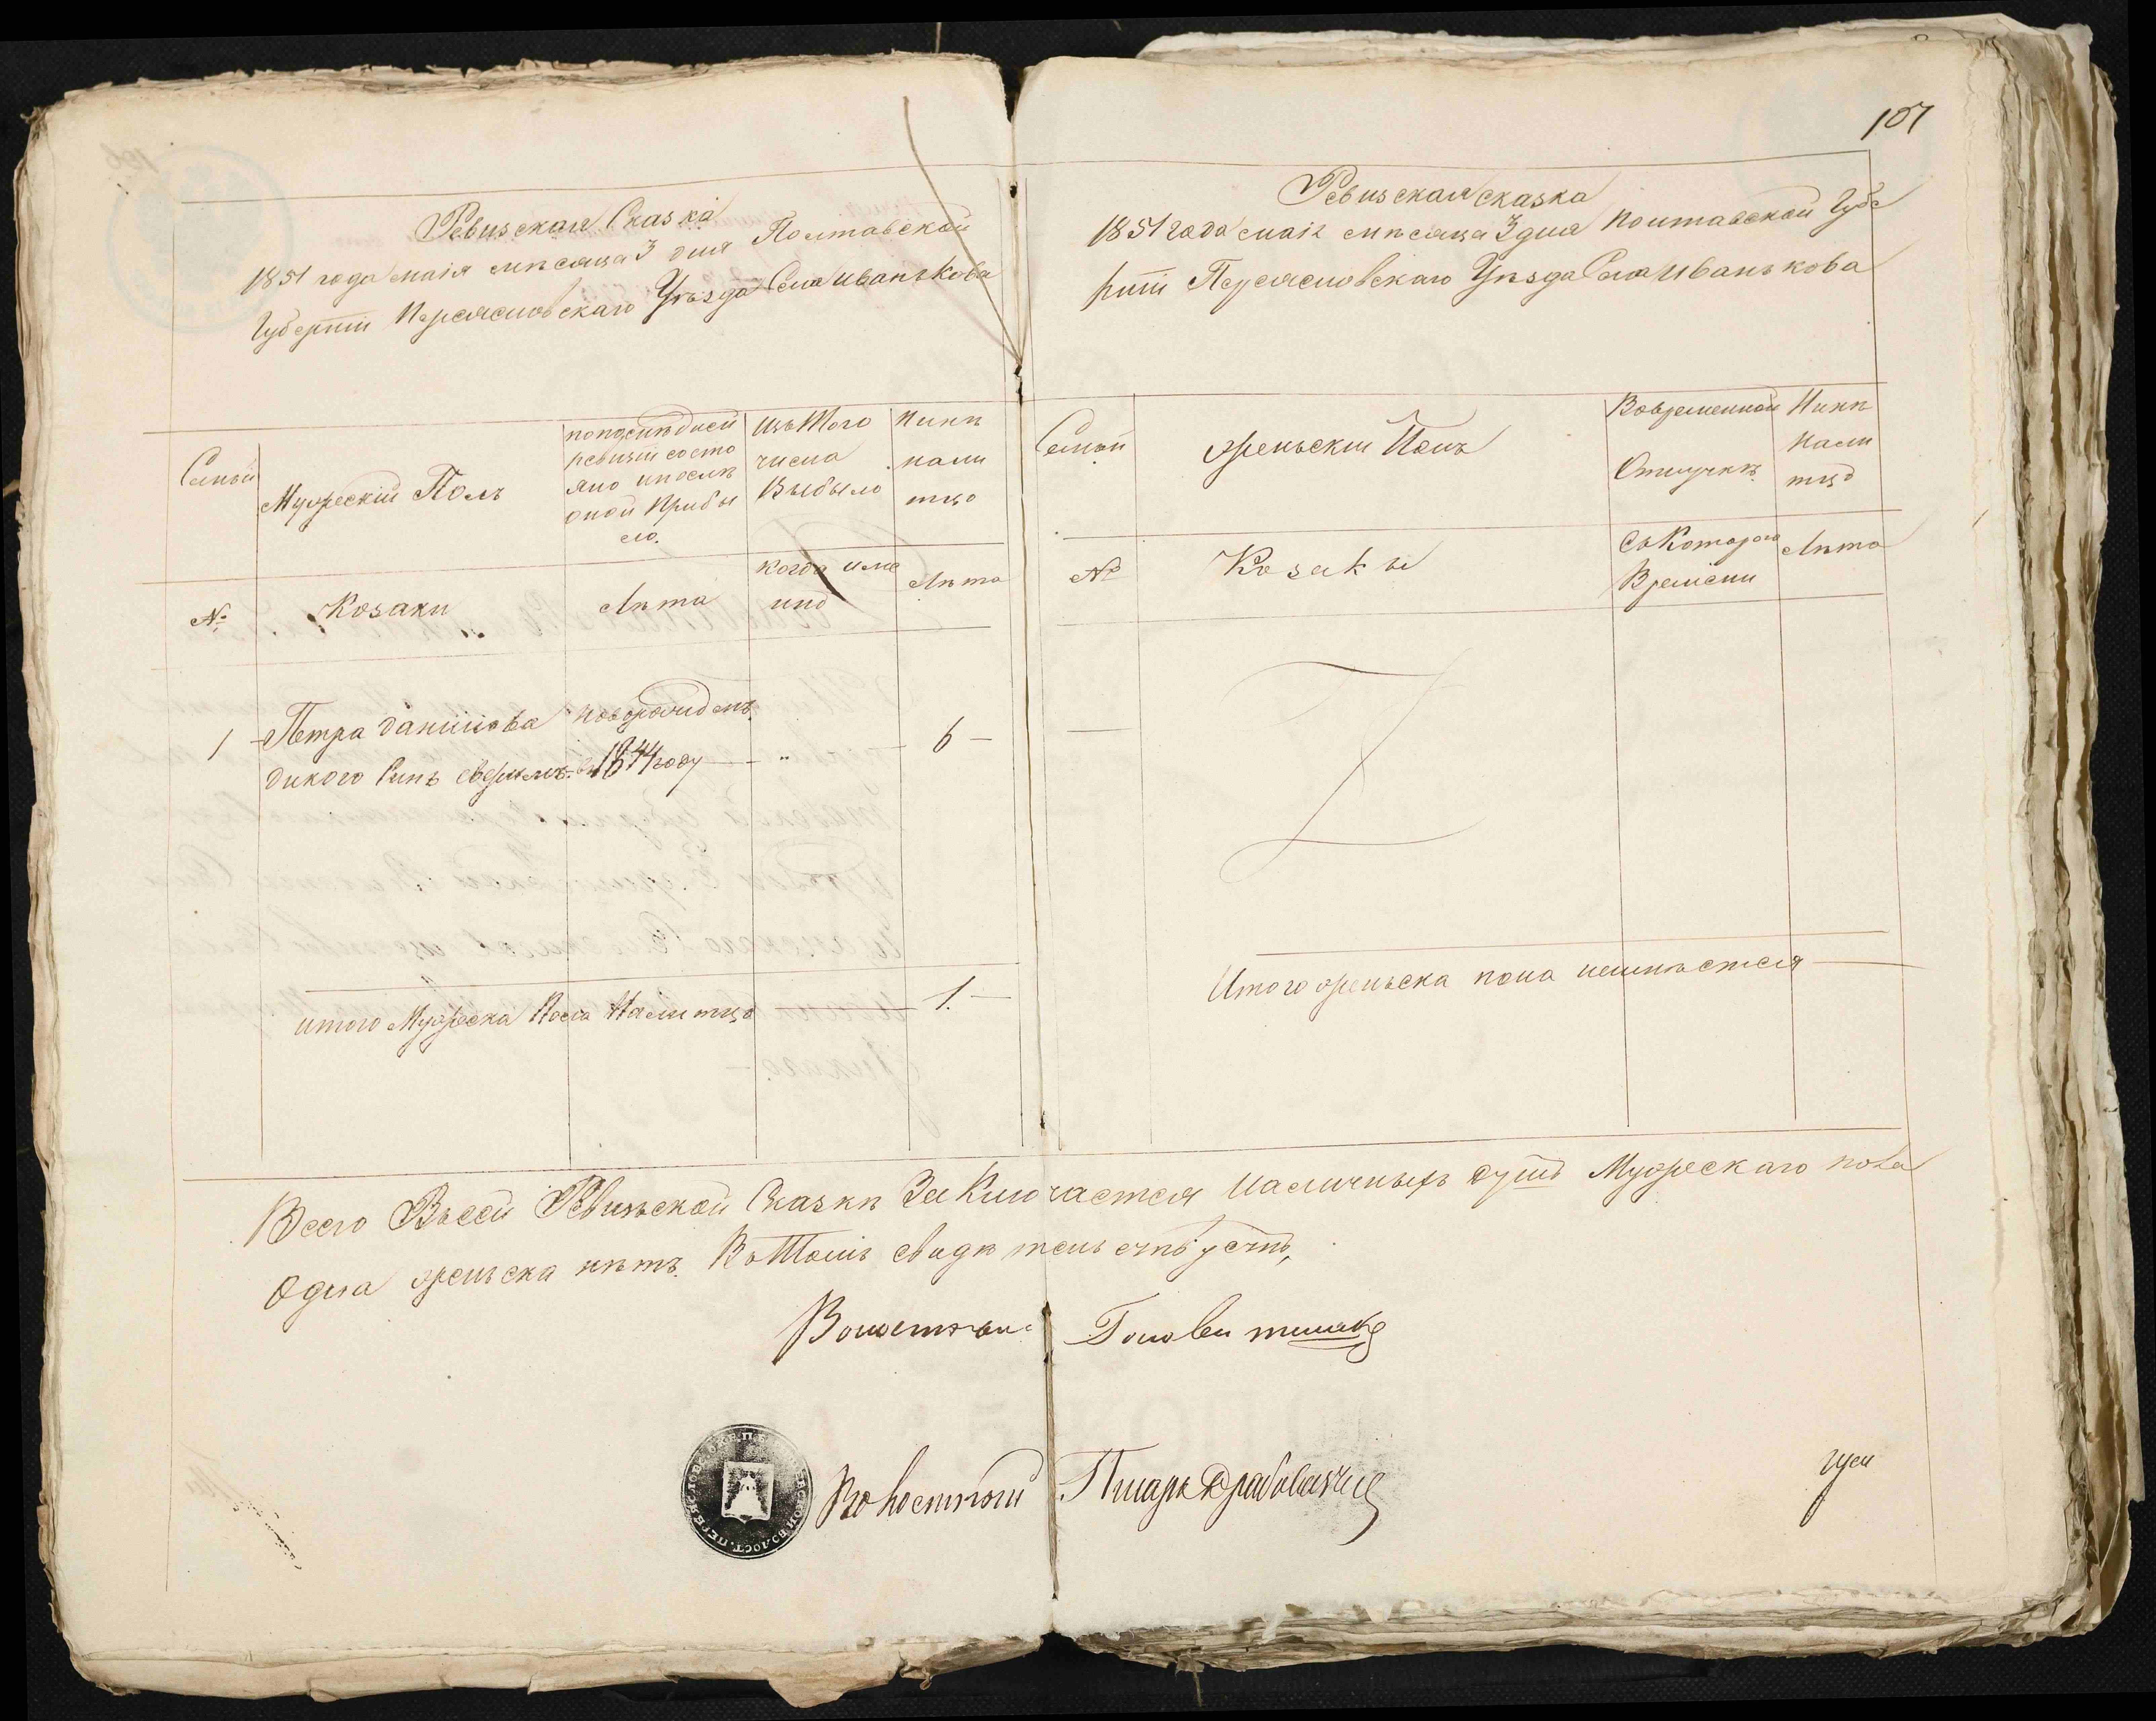 107
Ревизская Сказка
1851 года маія мѣсяца 3 дня Полтавской
Губерніи Переяславскаго Уѣзда Села Иванькова
Семьи
Мужескій Полъ
попослѣдней
ревизіи состо
яло ипослѣ
оной Прибы
ло.
изъ Того
числа
Выбыло
Нинѣ
нали
тцо
№
Козаки
Лѣта
когда име
нно
Лѣта
1 Петра данилова новорожденъ
дикого Синъ 1844 году " 6
итого Мужеска Пола Налитцо 1.
Ревизская сказка
1851 года маія мѣсяца 3 дня Полтавской Губе
рніи Переяславскаго Уѣзда Села Иванькова
Семьи
женьскій Полъ
Вовременной
Отлучкѣ
Нинѣ
Нали
тцо
№
Козакы
съКотораго
Времени
Лѣта
Итого женьска пола неимѣется
Всего Въсей Ревизьской Сказкѣ ЗаКлючается Наличныхъ душъ Мужескаго пола
Одна женьска нѣтъ. ВъТомъ свидѣтельствуетъ,
Волостный Голова
Волостной Писарь